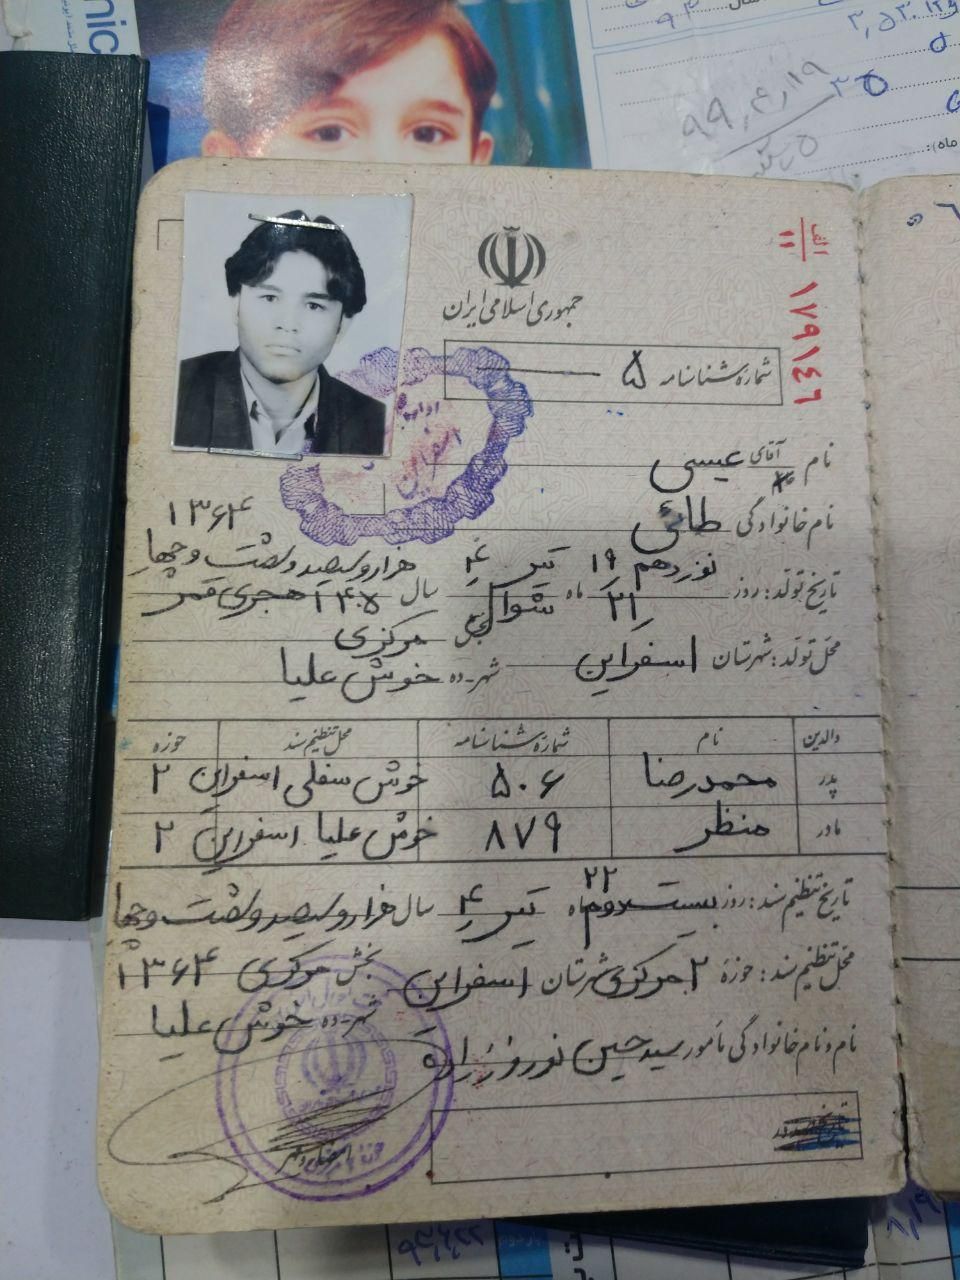 جمهوری اسلامی ایران
الف
۱۱
۱۷۹۱۴۶
شماره شناسنامه ۵
نام آقای عیسی
نام خانوادگی طائی
۱۳۶۴
تاریخ تولد: روز نوزدهم ۱۹ ماه تیر ۴ سال هزار و سیصد و شصت و چهار
۲۱ شوال ۱۴۰۵ هجری قمر
محل تولد: شهرستان اسفراین بخش مرکزی
شهر-ده خوش علیا
والدین نام شماره شناسنامه محل تنظیم سند حوزه
پدر محمدرضا ۵۰۶ خوش سفلی اسفراین ۲
مادر منظر ۸۷۹ خوش علیا اسفراین ۲
تاریخ تنظیم سند: روز بیست دوم ۲۲ ماه تیر ۴ سال هزار و سیصد و شصت و چهار
محل تنظیم سند: حوزه ۲ مرکزی شهرستان اسفراین بخش مرکزی ۱۳۶۴
شهر-ده خوش علیا
نام و نام خانوادگی مأمور سید حسین نوروززاده
۹۹,۴,۱۹
۳۵